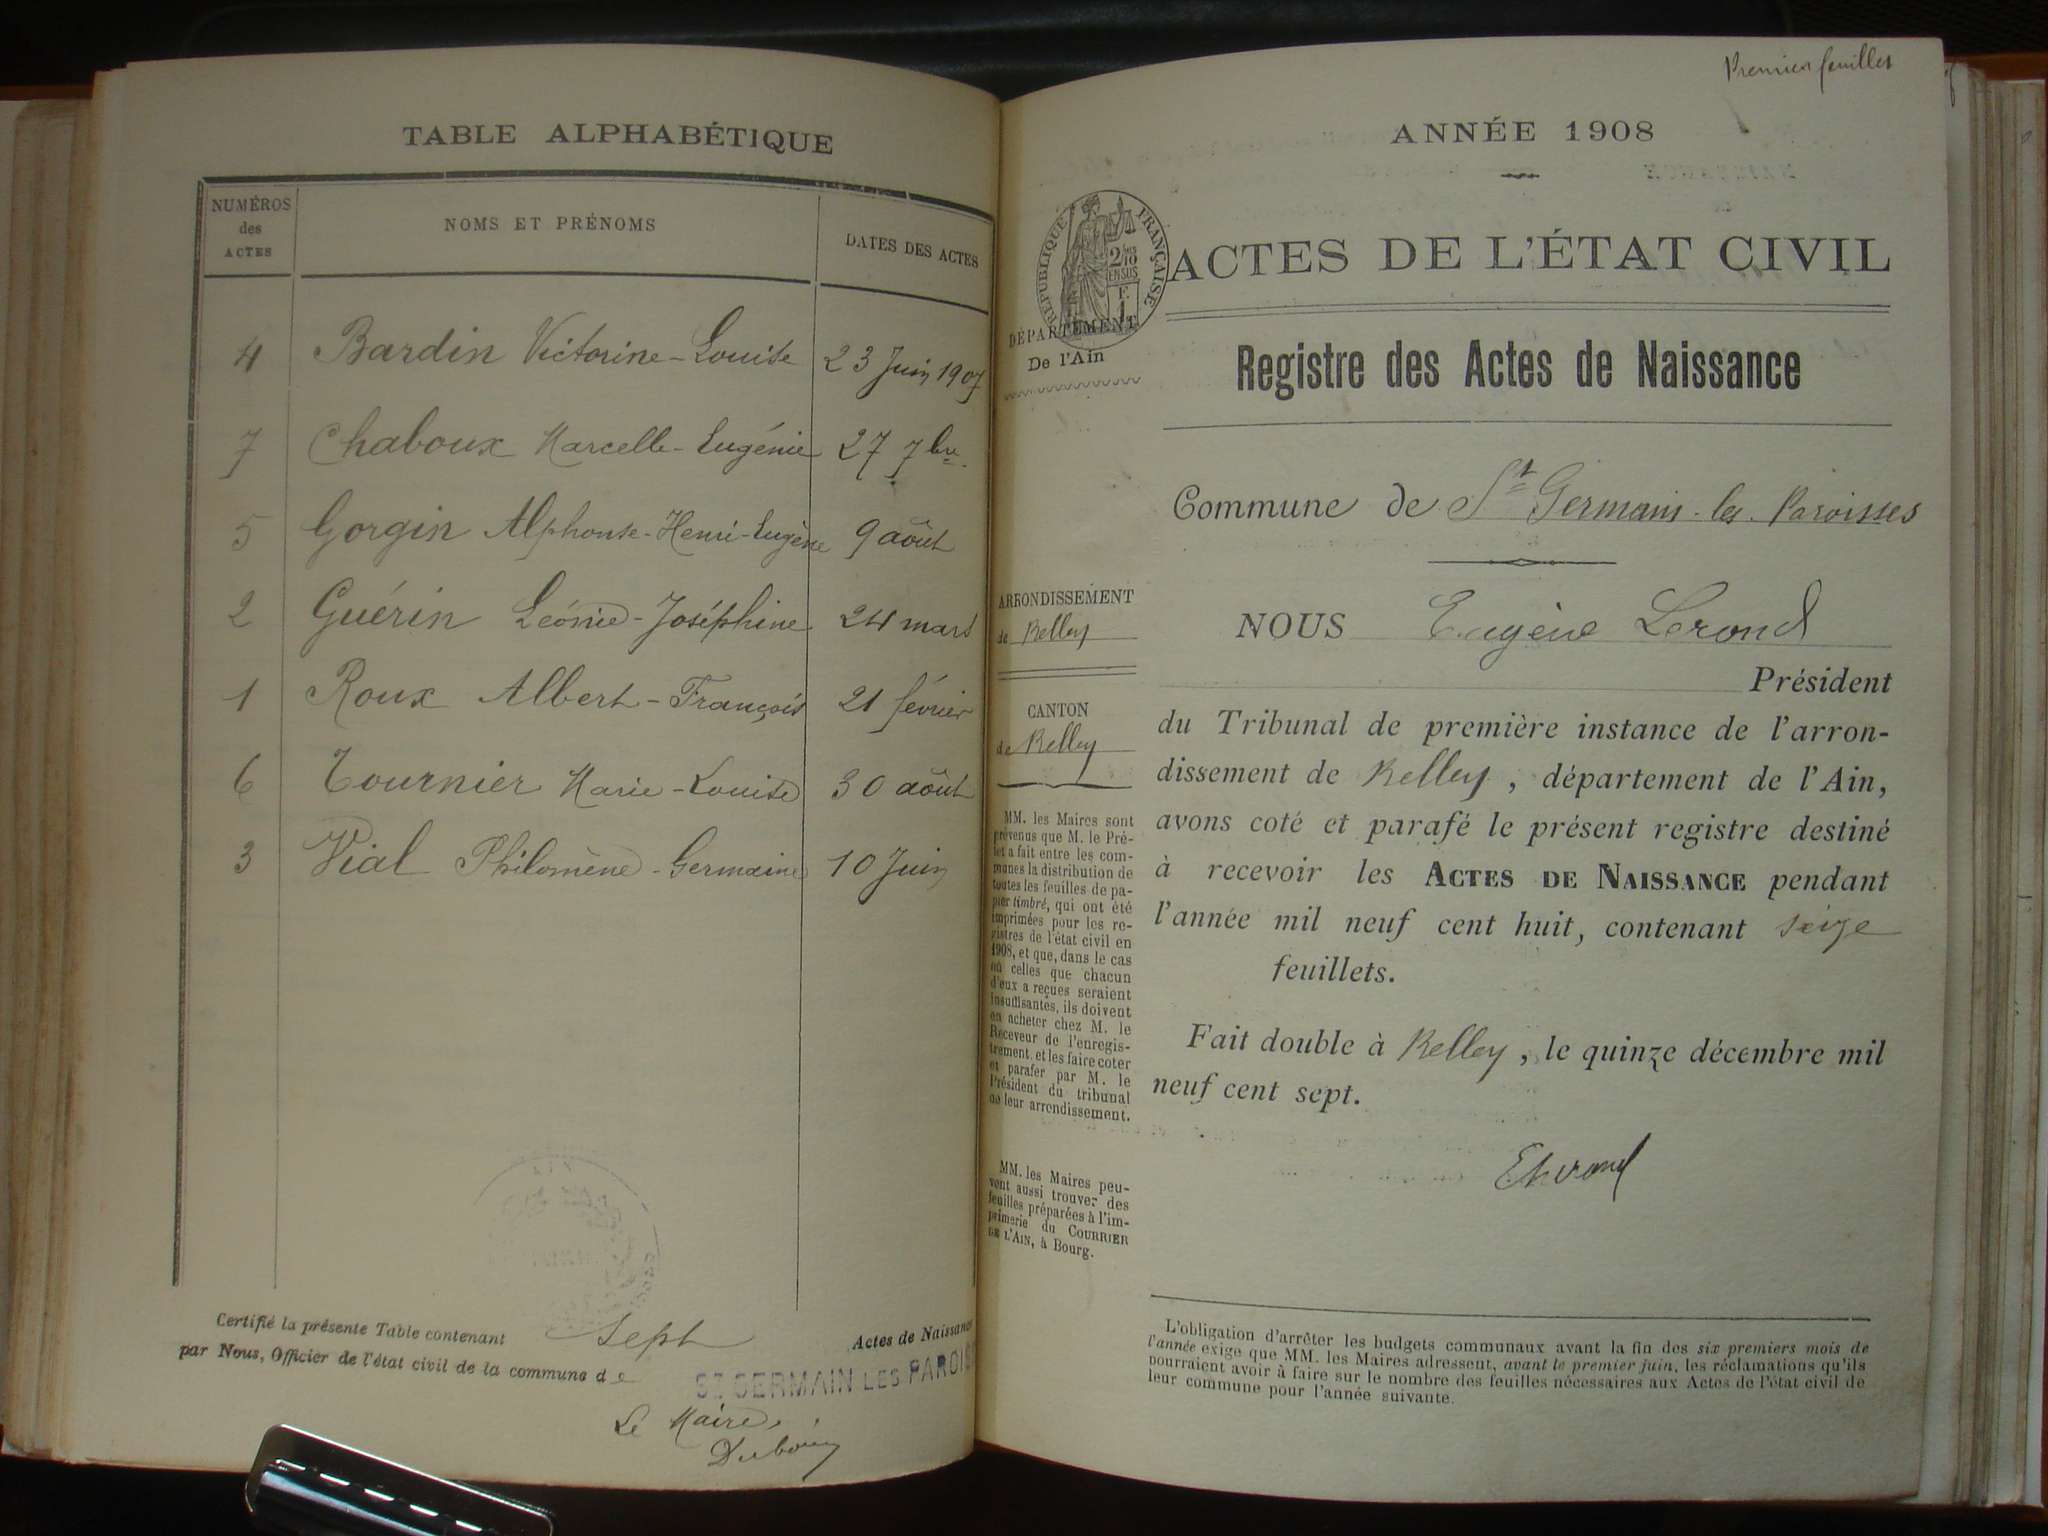 TABLE ALPHABÉTIQUE
NUMÉROS des ACTES
NOMS ET PRÉNOMS
DATES DES ACTES
4 Bardin Victorine-Louise 23 Juin 1907
7 Chaboux Marcelle-Eugénie 27 7bre
5 Gorgin Alphonse-Henri-Eugène 9 août
2 Guérin Léonie-Joséphine 24 mars
1 Roux Albert-François 21 février
6 Tournier Marie-Louise 30 août
3 Vial Philomène-Germaine 10 Juin
Certifié la présente Table contenant Sept Actes de Naissance
par Nous, Officier de l'état civil de la commune de
ST GERMAIN LES PAROIS
Le Maire,
Premier feuillet
ANNÉE 1908
RÉPUBLIQUE FRANÇAISE
ACTES DE L'ÉTAT CIVIL
DÉPARTEMENT
De l'Ain
Registre des Actes de Naissance
Commune de St Germain-les-Paroisses
ARRONDISSEMENT
de Belley
CANTON
de Belley
MM. les Maires sont
prévenus que M. le Pré-
fet a fait entre les com-
munes la distribution de
toutes les feuilles de pa-
pier timbré, qui ont été
imprimées pour les re-
gistres de l'état civil en
1908, et que, dans le cas
où celles que chacun
d'eux a reçues seraient
insuffisantes, ils doivent
en acheter chez M. le
Receveur de l'enregis-
trement, et les faire coter
et parafer par M. le
Président du tribunal
de leur arrondissement.
MM. les Maires peu-
vent aussi trouver des
feuilles préparées à l'im-
primerie du COURRIER
DE L'AIN, à Bourg.
NOUS Eugène Lerond
Président
du Tribunal de première instance de l'arron-
dissement de Belley, département de l'Ain,
avons coté et parafé le présent registre destiné
à recevoir les ACTES DE NAISSANCE pendant
l'année mil neuf cent huit, contenant seize
feuillets.
Fait double à Belley, le quinze décembre mil
neuf cent sept.
L'obligation d'arrêter les budgets communaux avant la fin des six premiers mois de
l'année exige que MM. les Maires adressent, avant le premier juin, les réclamations qu'ils
pourraient avoir à faire sur le nombre des feuilles nécessaires aux Actes de l'état civil de
leur commune pour l'année suivante.